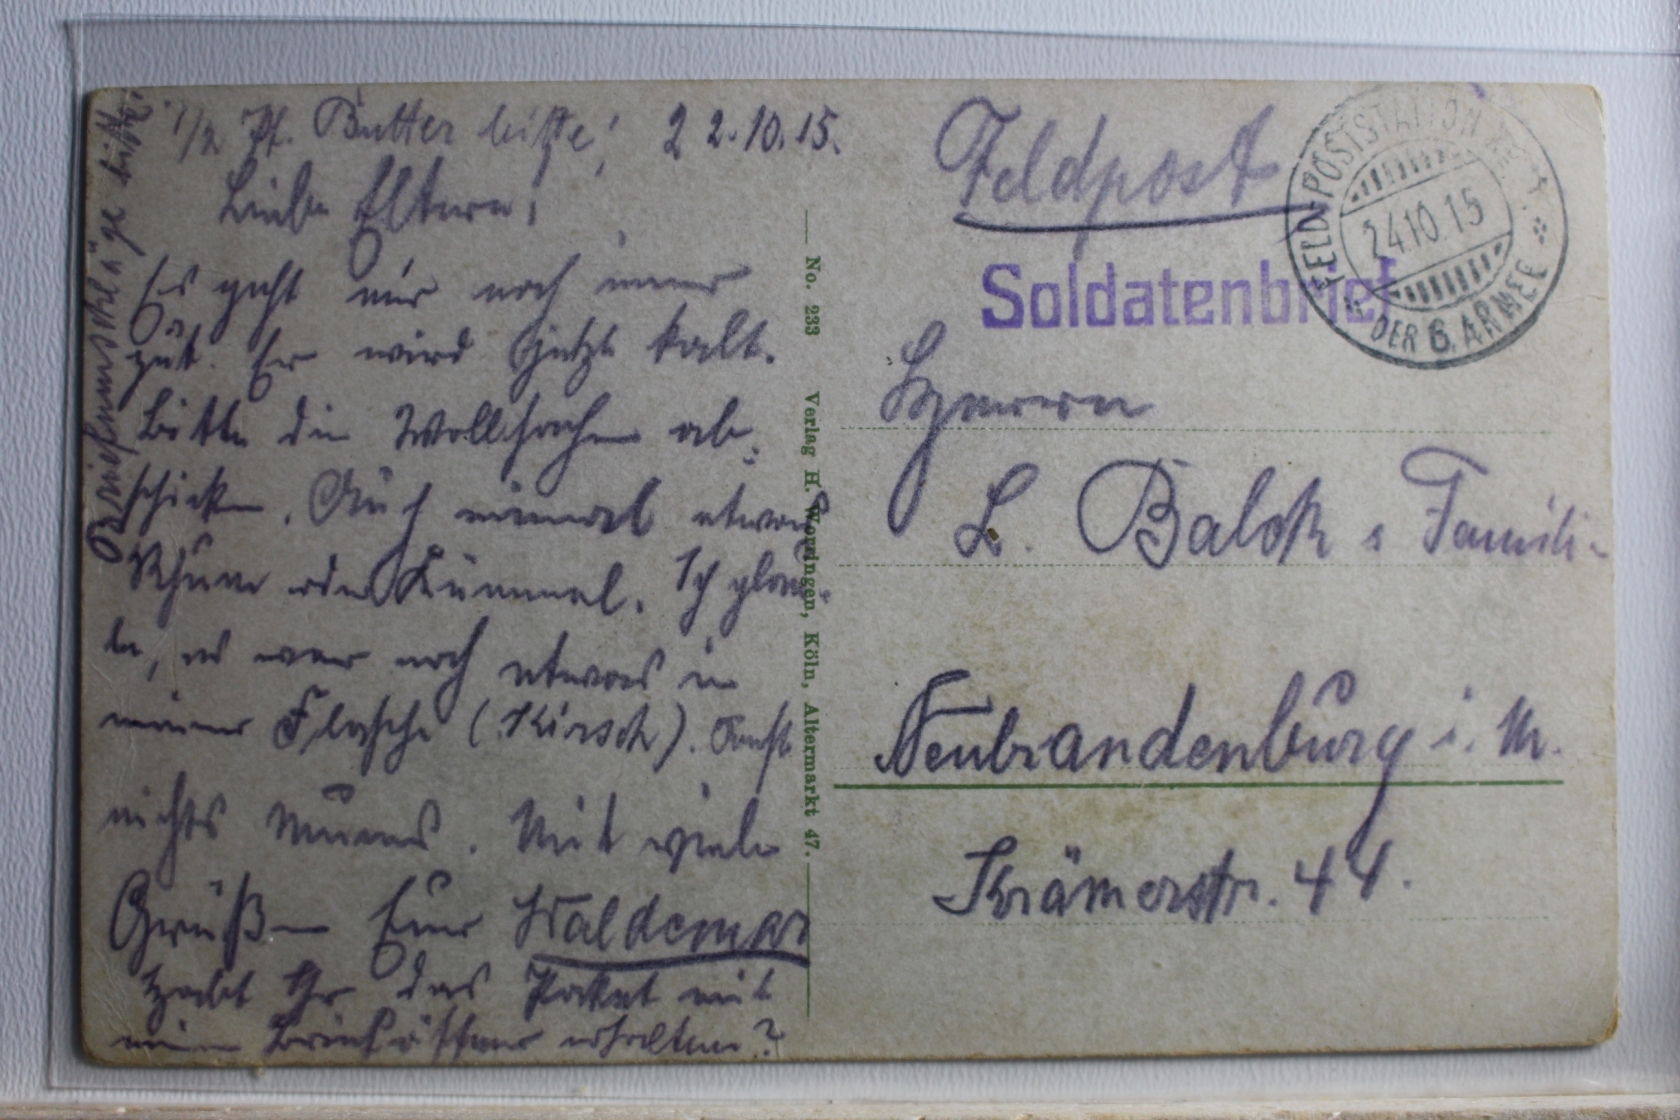 1/2 Pf. Butter bitte! 22.10.15.
Liebe Eltern!
Es geht mir noch immer
gut. Es wird jetzt kalt.
Bitte die Wollsachen ab-
schicken. Auch einmal etwas
Rhum oder Kümmel. Ich glau-
be, es war noch etwas in
meiner Flasche (Kirsch). Sonst
nichts Neues. Mit viele
Grüßen Euer Waldemar
Habt Ihr das Paket mit
mein Brieföffner erhalten?
Briefumschläge bitte!
No. 233 Verlag H. Worringen, Köln, Altermarkt 47.
Feldpost
FELD-POSTSTATION No.
24.10.15
DER 6. ARMEE
Soldatenbrief
Herrn
L. Balck s Familie
Neubrandenburg i. M.
Krämerstr. 44.